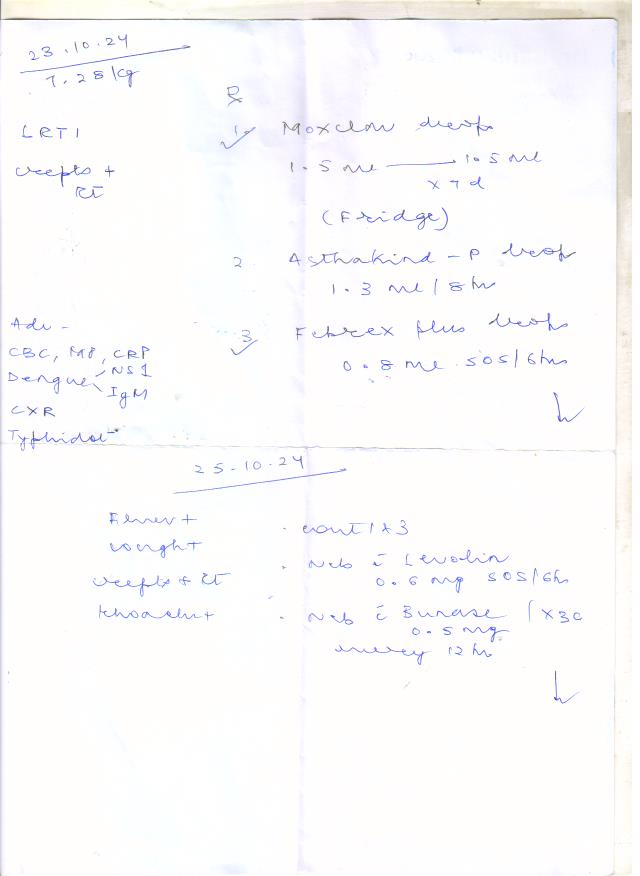 23.10.24
7.28 kg
LRTI
crepts +
Rt
Rx
1. Moxclav drops
1.5 ml — 1.5 ml
x 7 d
(Fridge)
2 Asthakind - P drop
1.3 ml / 8 hr
3. Febrex plus drops
0.8 ml SOS/6hrs
Adv -
CBC, MP, CRP
Dengue NS1
IgM
CXR
Typhidot
25-10-24
Fever +
cough +
crepts + Rt
. cont 1 & 3
. Neb c̄ Levolin
0.6 mg SOS/6hr
. Neb c̄ Budase / x 3d
0.5 mg
every 12 hr